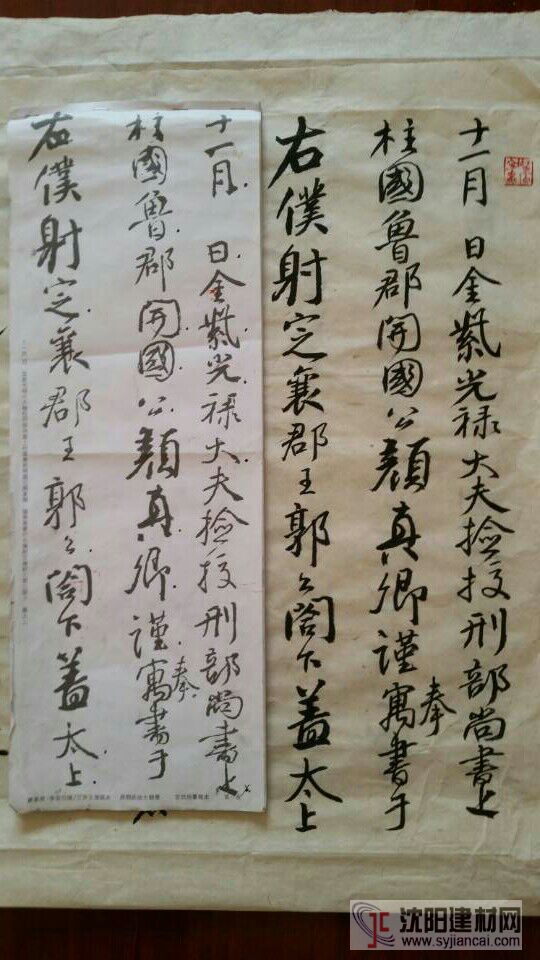 十一月 日金紫光禄大夫撿挍刑部尚書上
柱國魯郡開國公顔真卿謹奉寓書于
右僕射定襄郡王郭公閤下蓋太上
十一月 日金紫光禄大夫撿挍刑部尚書上
柱國魯郡開國公顔真卿謹奉寓書于
右僕射定襄郡王郭公閤下蓋太上
沈阳建材网
www.syjiancai.com